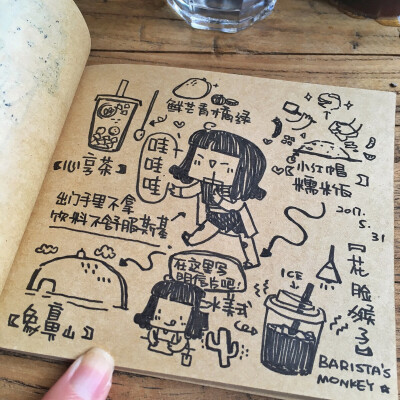 鲜芒青橘绿
哇
哇
哇
【心享茶】
小红帽
糯米饭
2017.
5.
31
出门手里不拿
饮料不舒服斯基
在这里写
明信片吧!
美式
ICE
【象鼻山】
【花脸猴子】
BARISTA'S
MONKEY